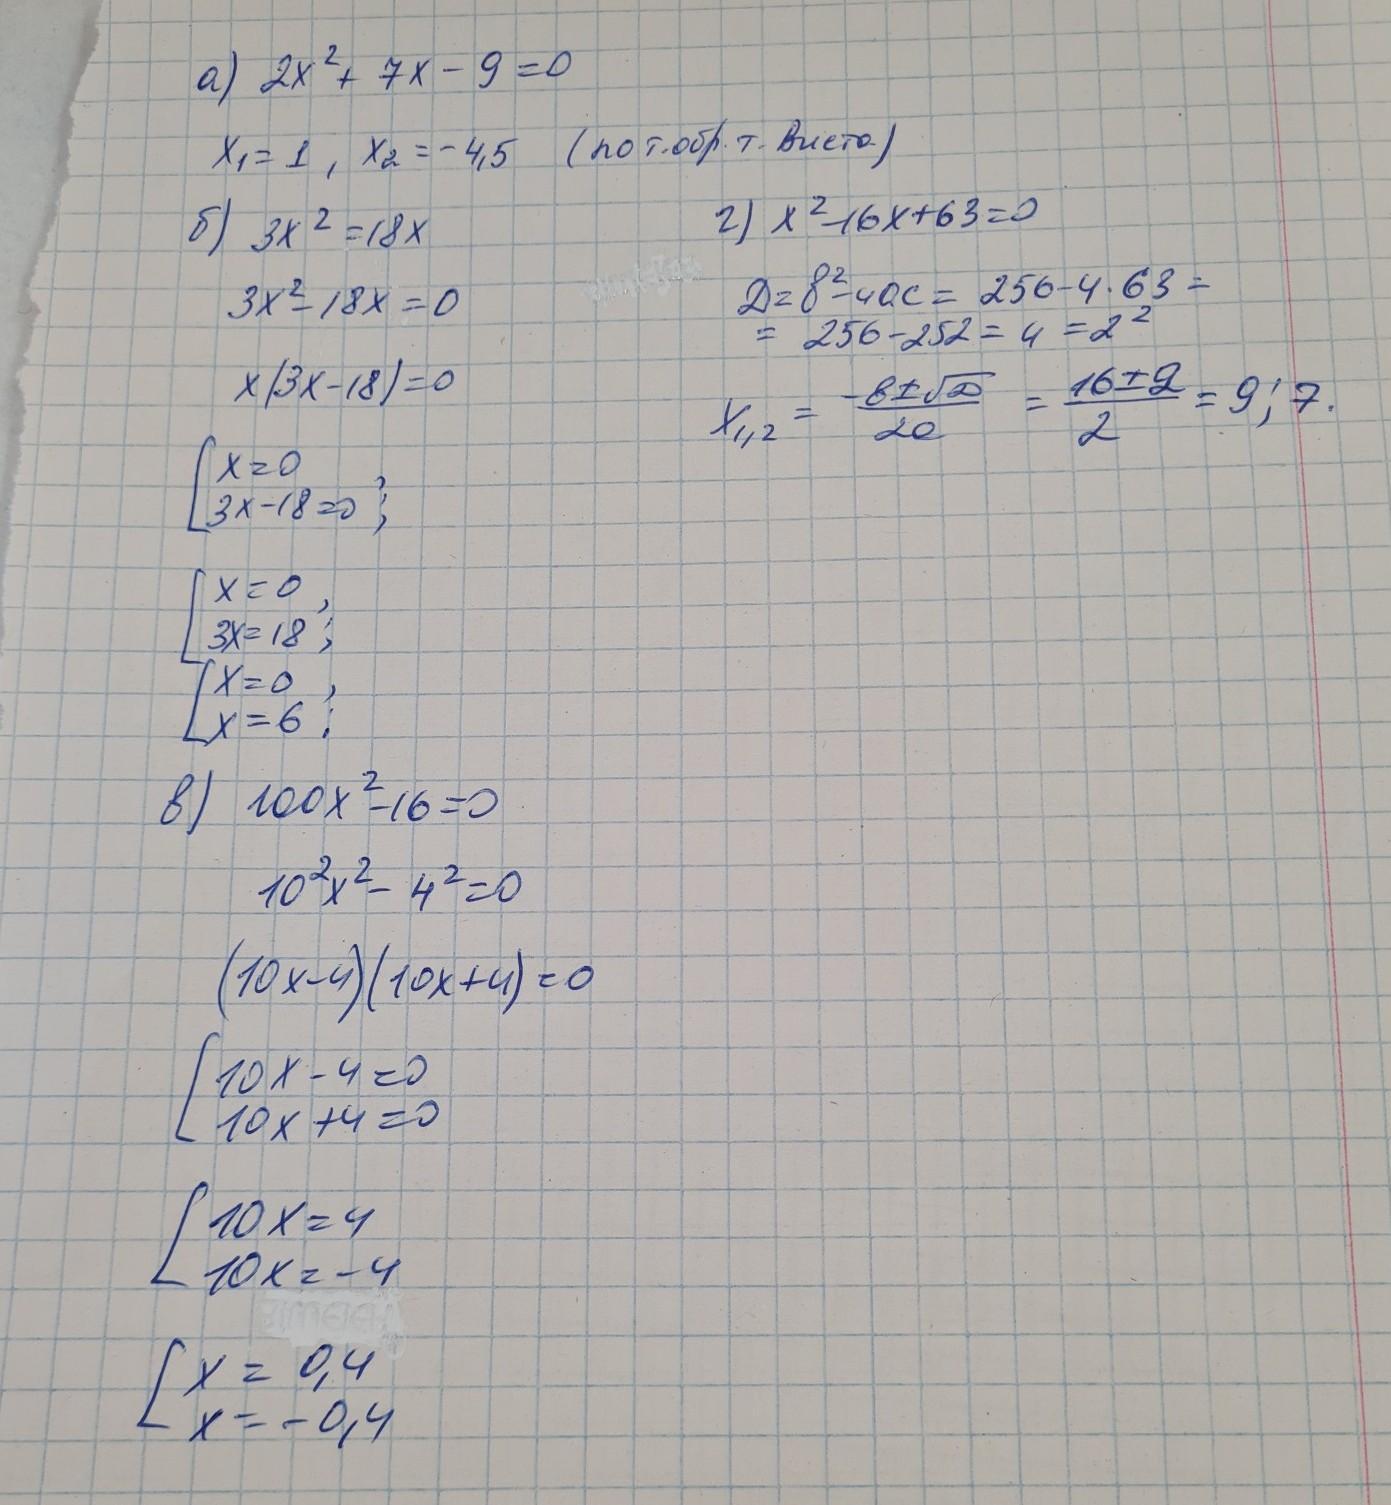 а) 2x² + 7x - 9 = 0
x₁ = 1, x₂ = -4,5 (по т. обр. т. Виета)
б) 3x² = 18x
3x² - 18x = 0
x(3x - 18) = 0
[ x = 0,
3x - 18 = 0;
[ x = 0,
3x = 18;
[ x = 0,
x = 6;
в) 100x² - 16 = 0
10²x² - 4² = 0
(10x - 4)(10x + 4) = 0
[ 10x - 4 = 0
10x + 4 = 0
[ 10x = 4
10x = -4
[ x = 0,4
x = -0,4
г) x² - 16x + 63 = 0
Д = в² - 4ac = 256 - 4 · 63 =
= 256 - 252 = 4 = 2²
x₁,₂ = (-в ± √D)/2a = (16 ± 2)/2 = 9; 7.